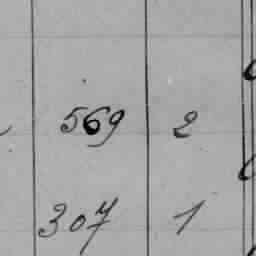 569 2
307 1